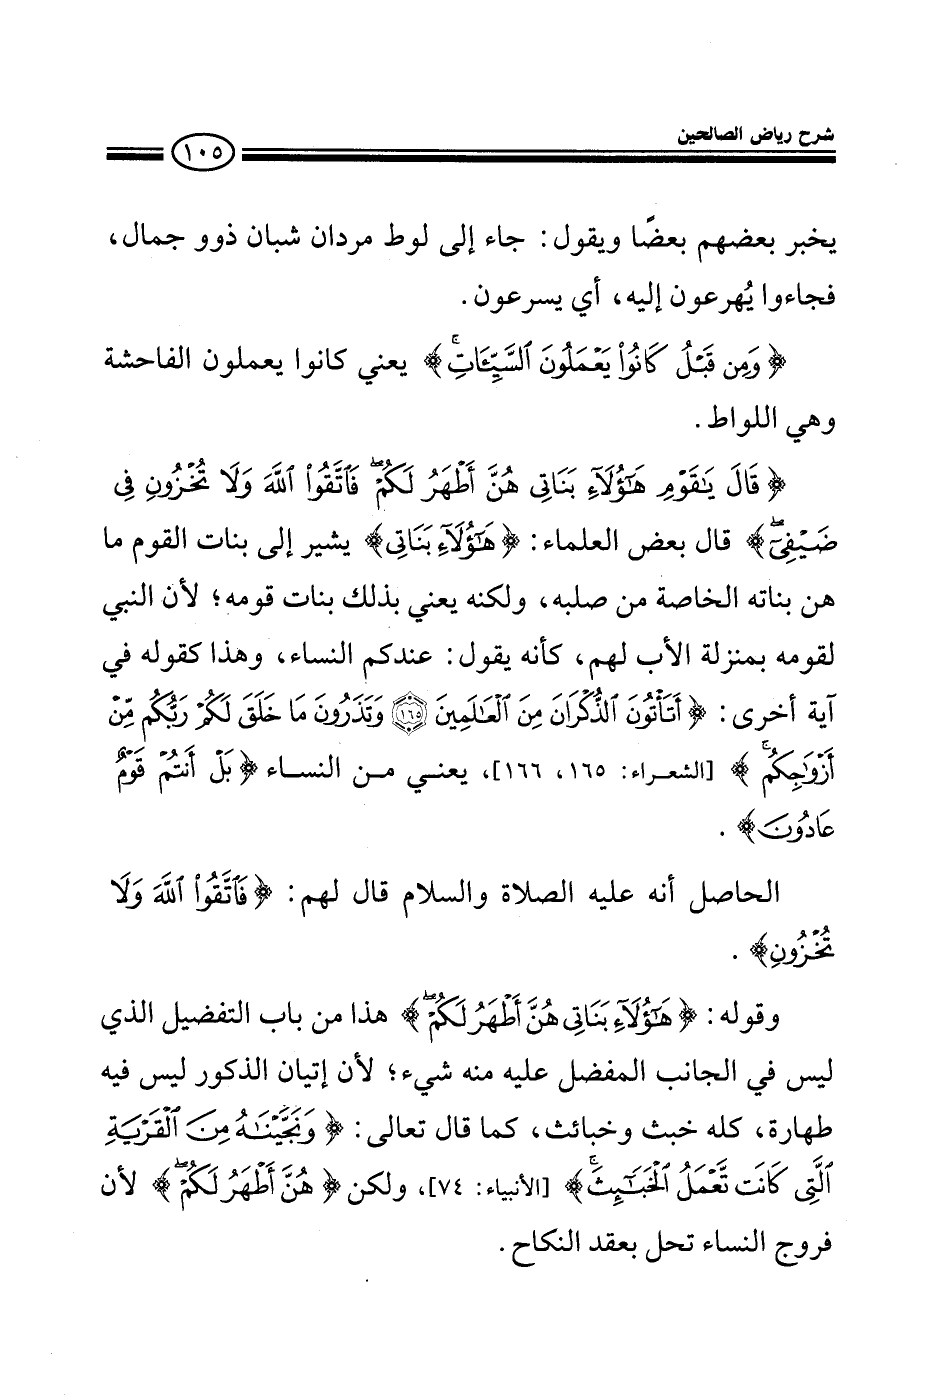 شرح رياض الصالحين
١٠٥
يخبر بعضهم بعضًا ويقول: جاء إلى لوط مردان شبان ذوو جمال،
فجاءوا يُهرعون إليه، أي يسرعون.
﴿وَمِن قَبْلُ كَانُوا۟ يَعْمَلُونَ ٱلسَّيِّـَٔاتِ ۚ﴾ يعني كانوا يعملون الفاحشة
وهي اللواط.
﴿قَالَ يَـٰقَوْمِ هَـٰٓؤُلَآءِ بَنَاتِى هُنَّ أَطْهَرُ لَكُمْ ۖ فَٱتَّقُوا۟ ٱللَّهَ وَلَا تُخْزُونِ فِى
ضَيْفِىٓ ۖ﴾ قال بعض العلماء: ﴿هَـٰٓؤُلَآءِ بَنَاتِى﴾ يشير إلى بنات القوم ما
هن بناته الخاصة من صلبه، ولكنه يعني بذلك بنات قومه؛ لأن النبي
لقومه بمنزلة الأب لهم، كأنه يقول: عندكم النساء، وهذا كقوله في
آية أخرى: ﴿أَتَأْتُونَ ٱلذُّكْرَانَ مِنَ ٱلْعَـٰلَمِينَ ١٦٥ وَتَذَرُونَ مَا خَلَقَ لَكُمْ رَبُّكُم مِّنْ
أَزْوَٰجِكُم ۚ﴾ [الشعراء: ١٦٥، ١٦٦]، يعني من النساء ﴿بَلْ أَنتُمْ قَوْمٌ
عَادُونَ﴾.
الحاصل أنه عليه الصلاة والسلام قال لهم: ﴿فَٱتَّقُوا۟ ٱللَّهَ وَلَا
تُخْزُونِ﴾.
وقوله: ﴿هَـٰٓؤُلَآءِ بَنَاتِى هُنَّ أَطْهَرُ لَكُمْ ۖ﴾ هذا من باب التفضيل الذي
ليس في الجانب المفضل عليه منه شيء؛ لأن إتيان الذكور ليس فيه
طهارة، كله خبث وخبائث، كما قال تعالى: ﴿وَنَجَّيْنَـٰهُ مِنَ ٱلْقَرْيَةِ
ٱلَّتِى كَانَت تَّعْمَلُ ٱلْخَبَـٰٓئِثَ ۚ﴾ [الأنبياء: ٧٤]، ولكن ﴿هُنَّ أَطْهَرُ لَكُمْ ۖ﴾ لأن
فروج النساء تحل بعقد النكاح.